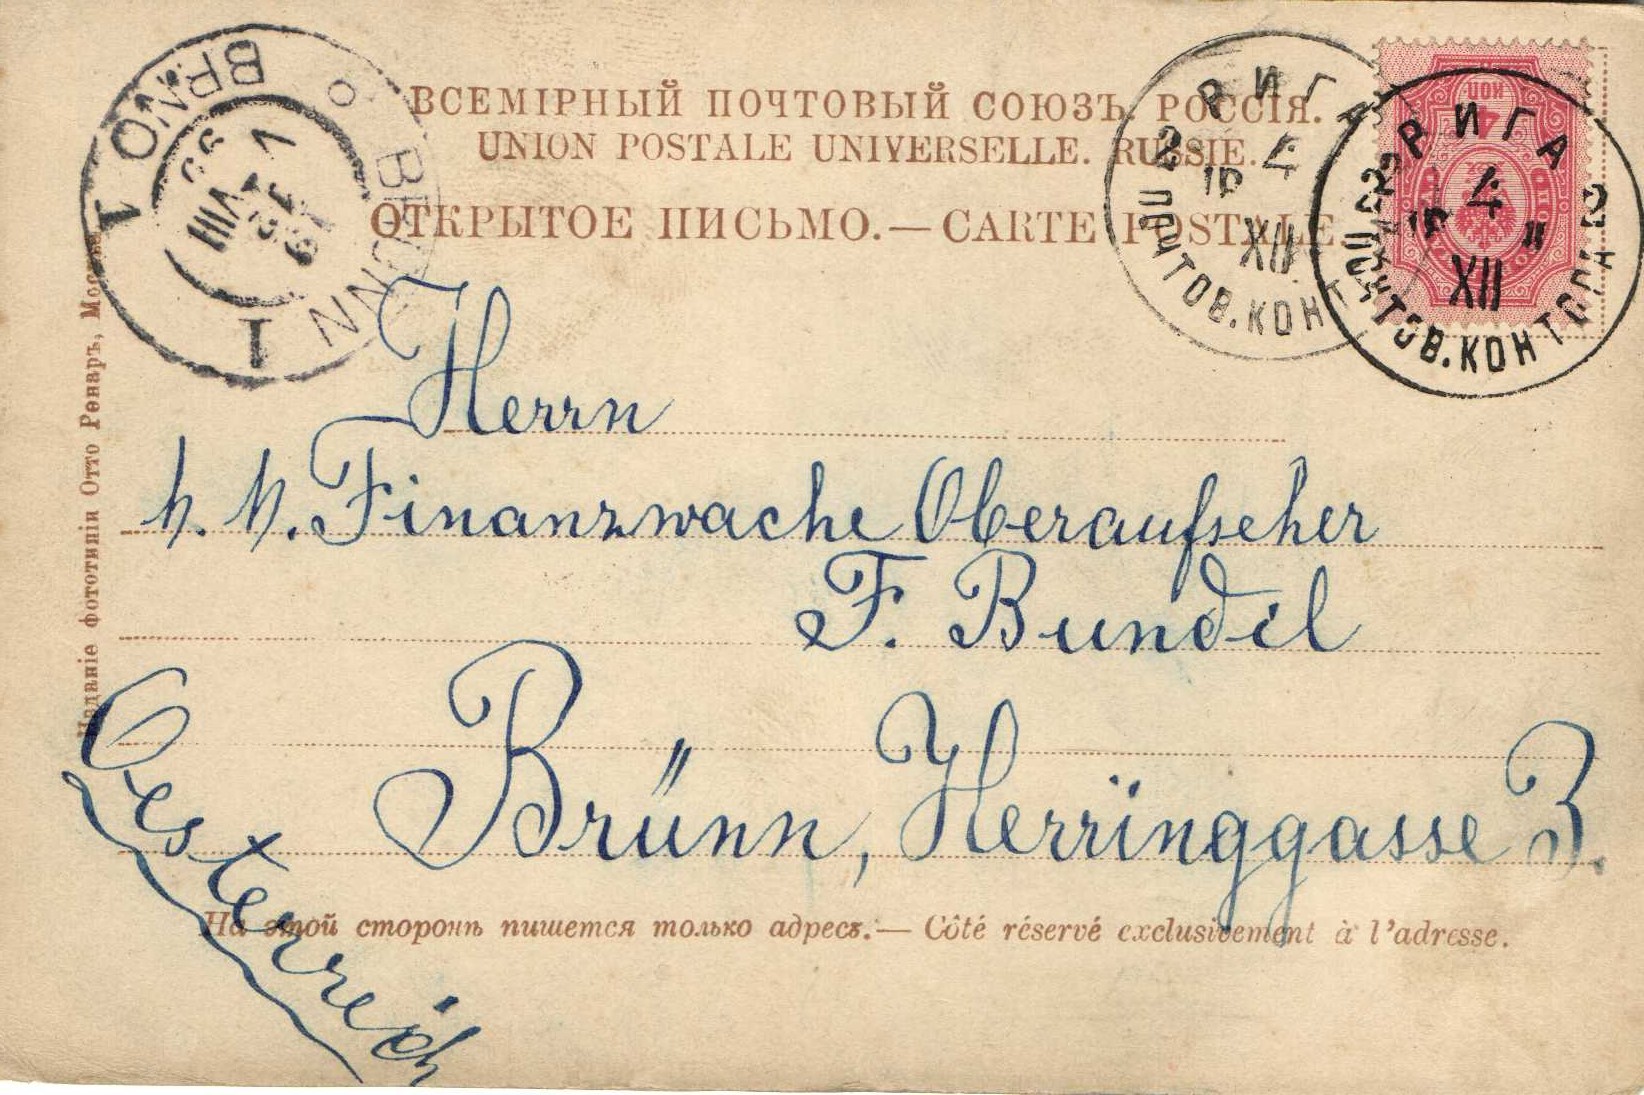 ВСЕМІРНЫЙ ПОЧТОВЫЙ СОЮЗЪ. РОССІЯ.
UNION POSTALE UNIVERSELLE. RUSSIE.
ОТКРЫТОЕ ПИСЬМО.—CARTE POSTALE.
BRNO
BRÜNN
1
1
РИГА
4
XII
2 ПОЧТОВ. КОНТ
РИГА
4
XII
ПОЧТОВ. КОНТОРА 2
4
КОП
Herrn
k. k. Finanzwache Oberaufseher
F. Bundil
Brünn, Herringgasse 3.
Oesterreich
На этой сторонѣ пишется только адресъ.— Côté réservé exclusivement à l'adresse.
Изданіе фототипіи Отто Ренаръ, Москва